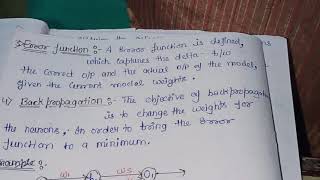 3) Error function :- A Error function is defined,
which captures the delta b/w
the correct o/p and the actual o/p of the model,
given the current model weights.
4) Backpropagation :- The objective of backpropagati
is to change the weights for
the neurons, in order to bring the Error
function to a minimum.
Example :-
w1 h1 w5 O1